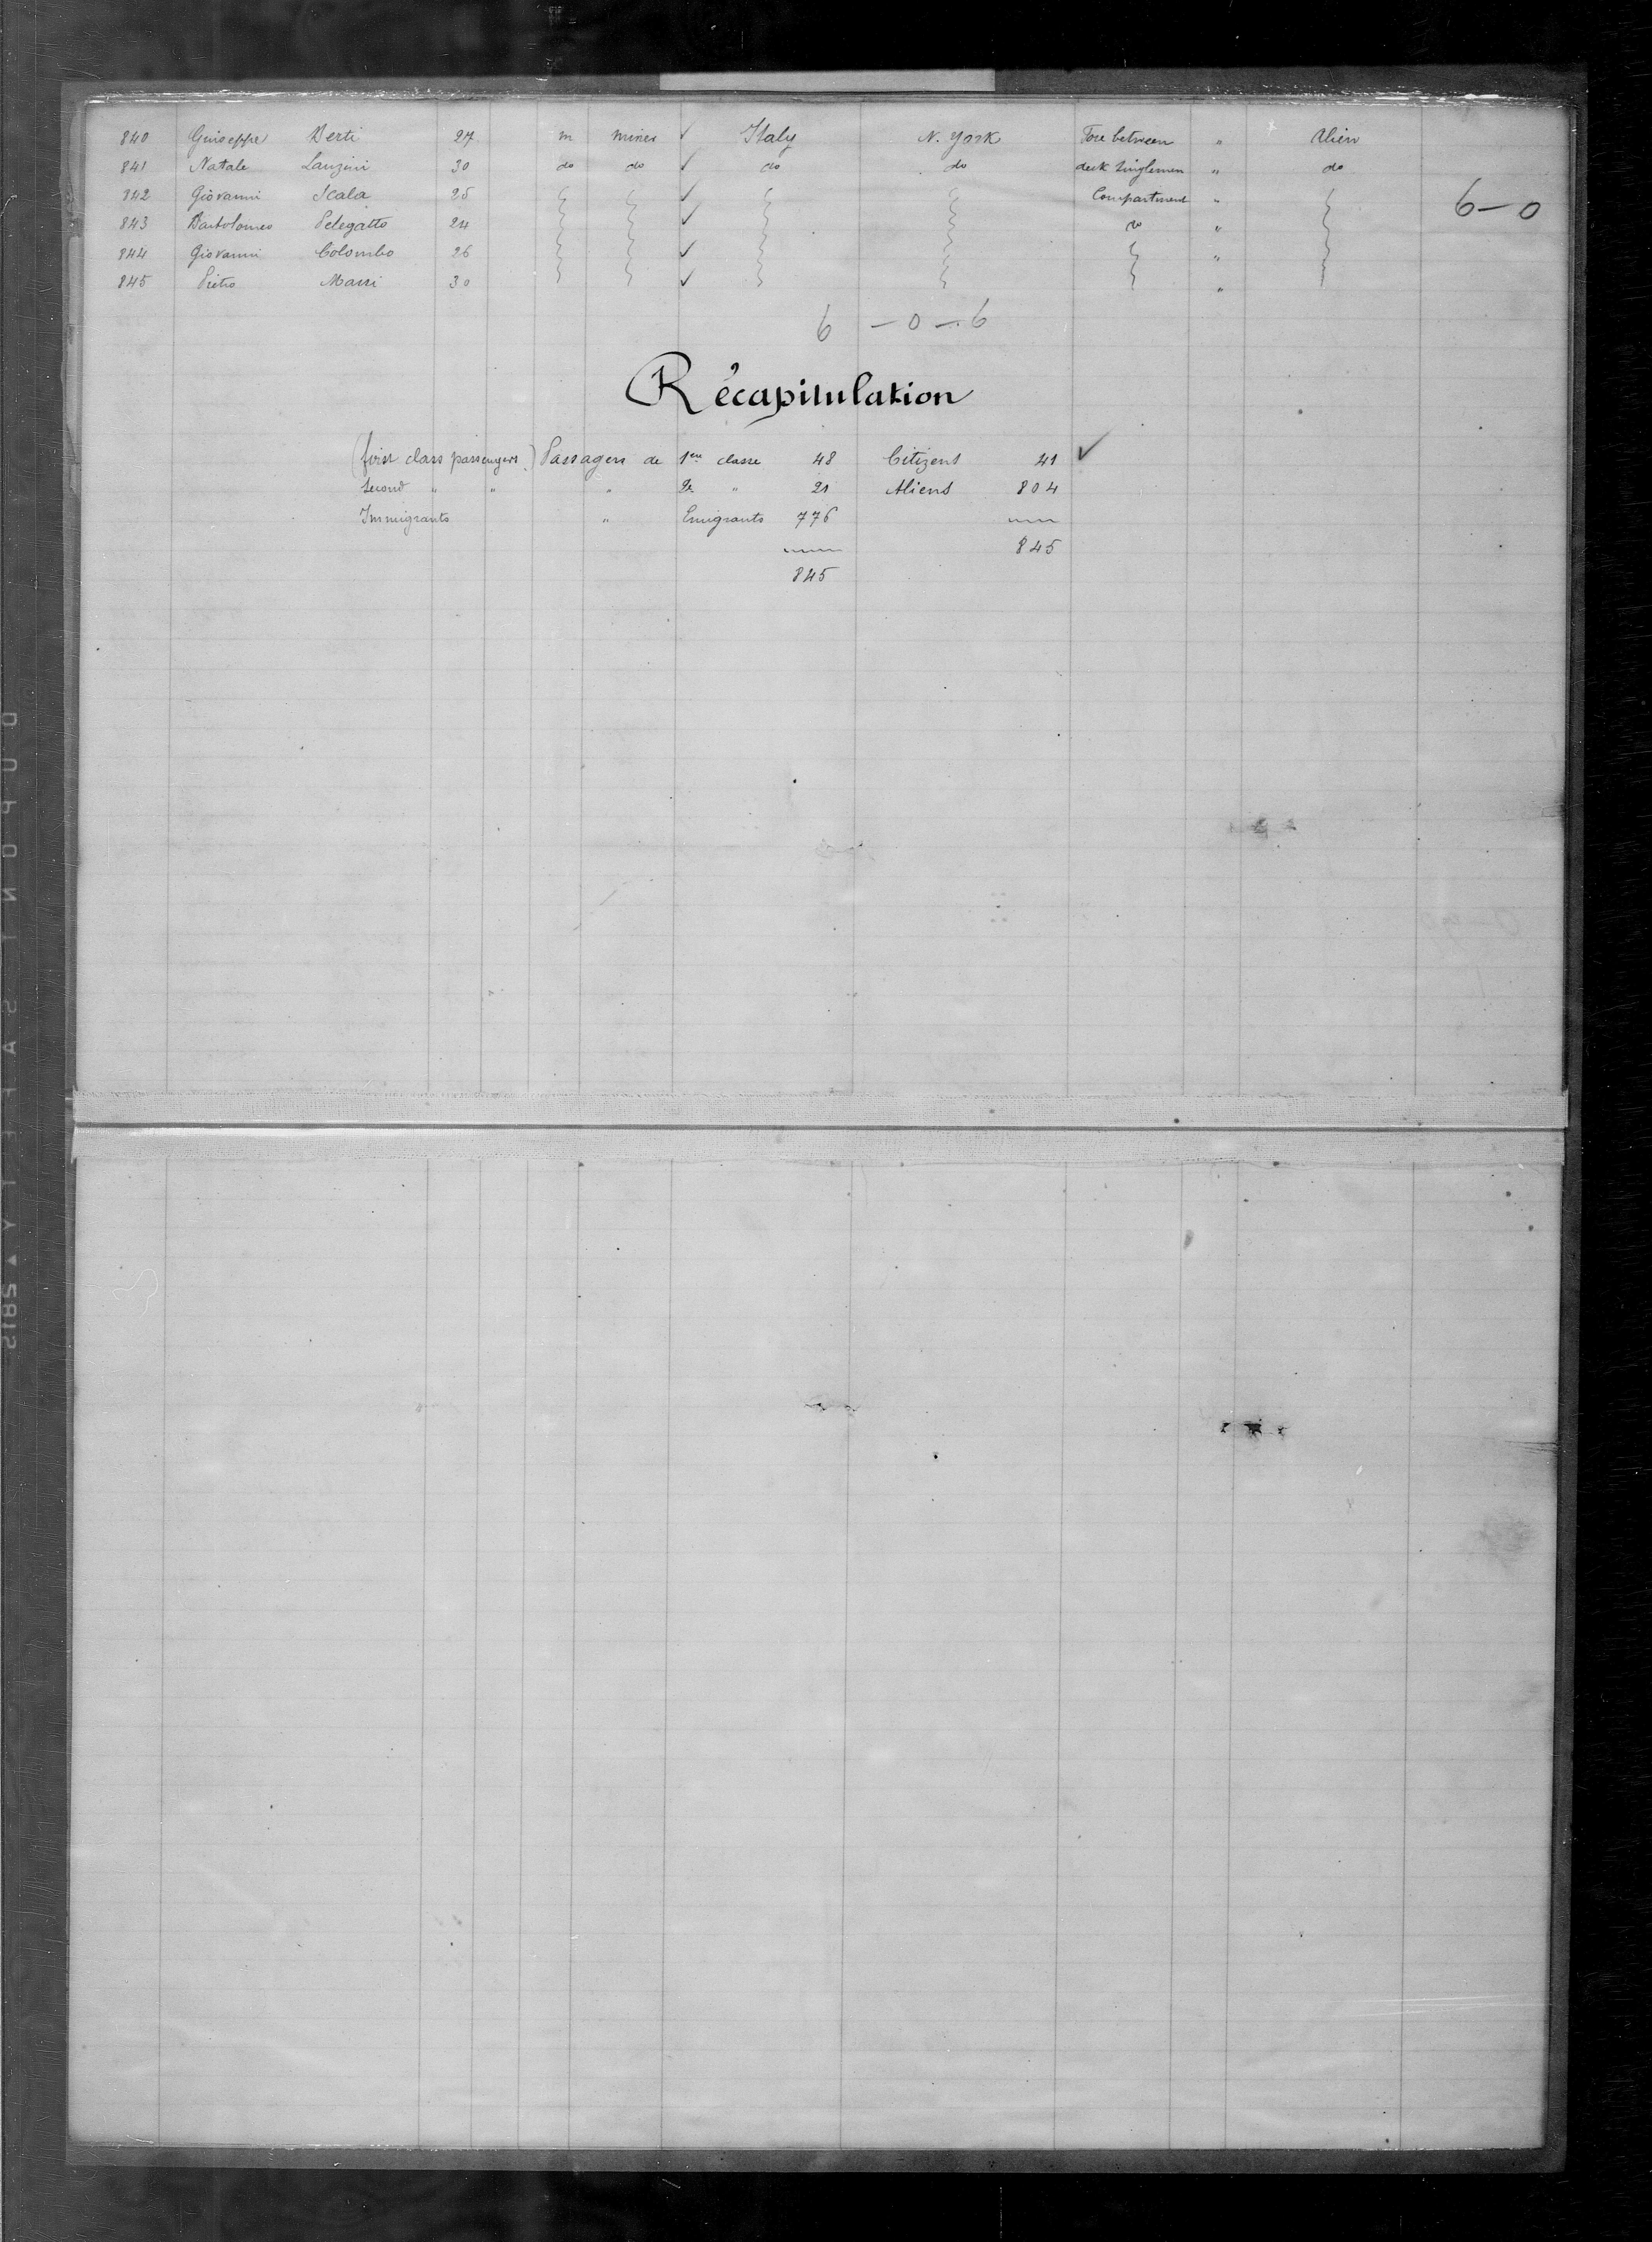 840 Guiseppe Berti 27 m miner ✓ Italy N. York Fore between " Alien
841 Natale Lanzini 30 do do ✓ do do deck Singlemen " do
842 Giovanni Scala 25 ✓ Compartment " 6-0
843 Bartolomeo Pelegatto 24 ✓ "
844 Giovanni Colombo 26 ✓ "
845 Pietro Massi 30 ✓ "
6 - 0 - 6
Récapitulation
(first class passengers) Passagers de 1ere classe 48 Citizens 41 ✓
Second " " " 2e " 21 Aliens 804
Immigrants " Emigrants 776
845
845
DUPONT SAFETY 2812